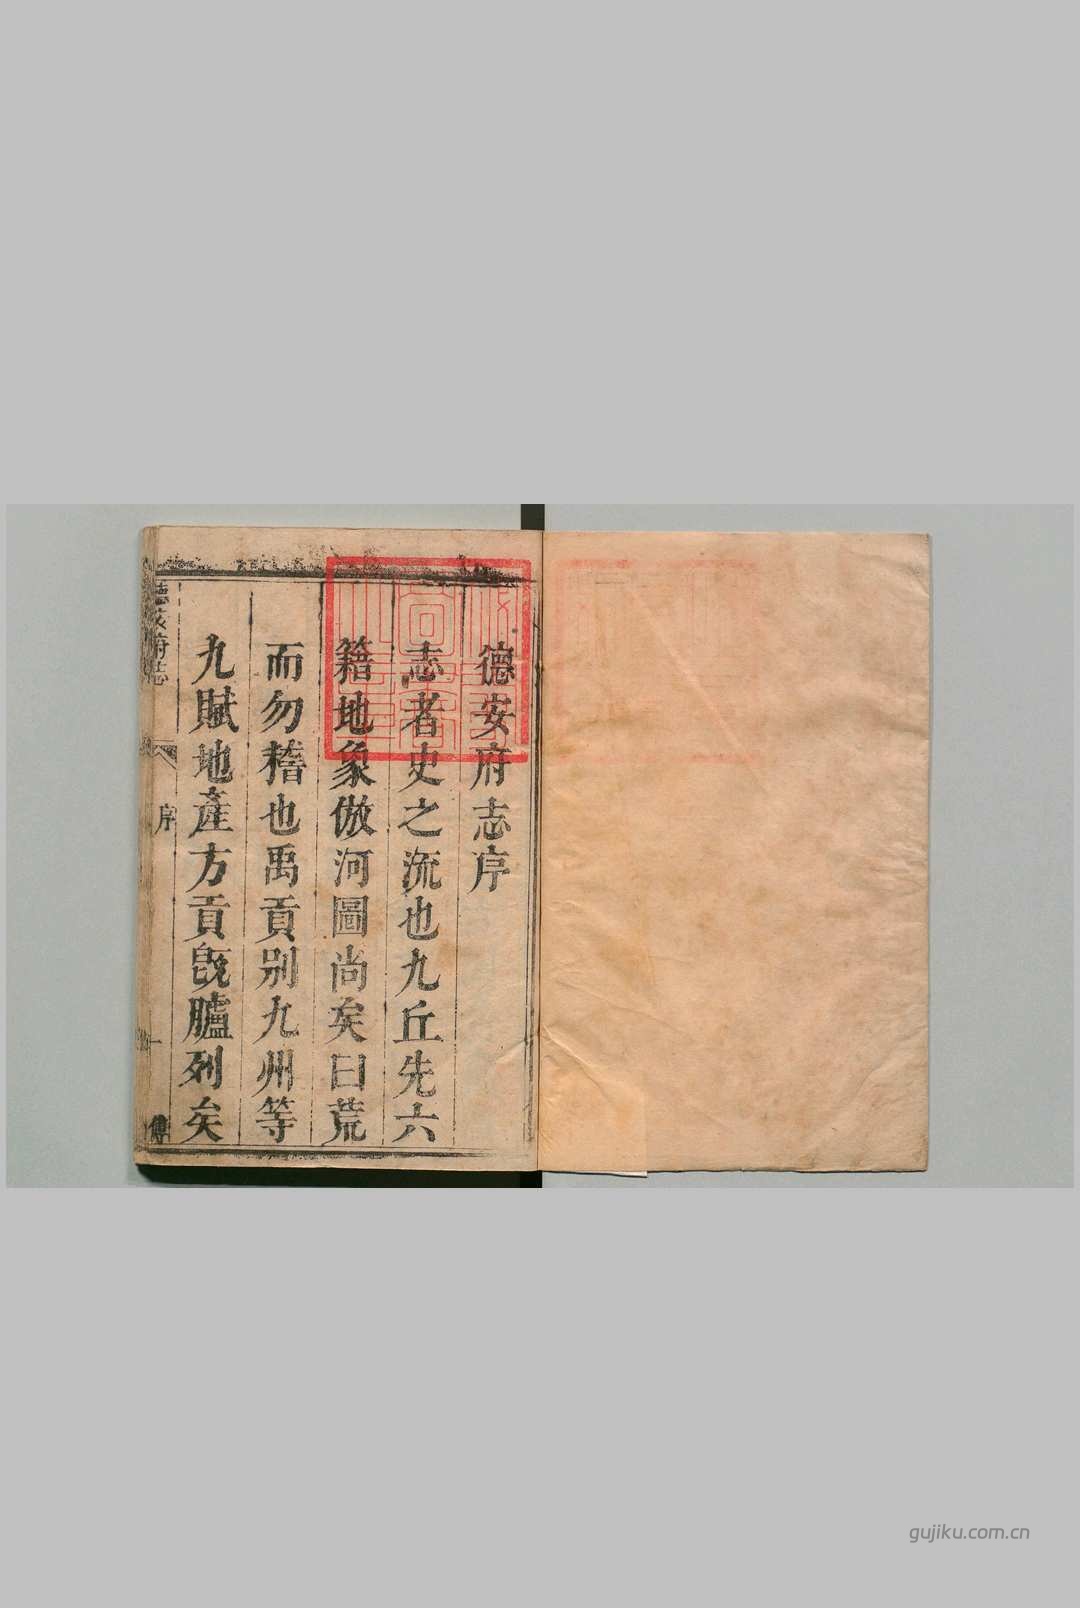 德安府志序
志者史之流也九丘先六
籍地象倣河圖尚矣曰荒
而勿稽也禹貢別九州等
九賦地產方貢旣臚列矣
德安府志
序
一
傳
gujiku.com.cn